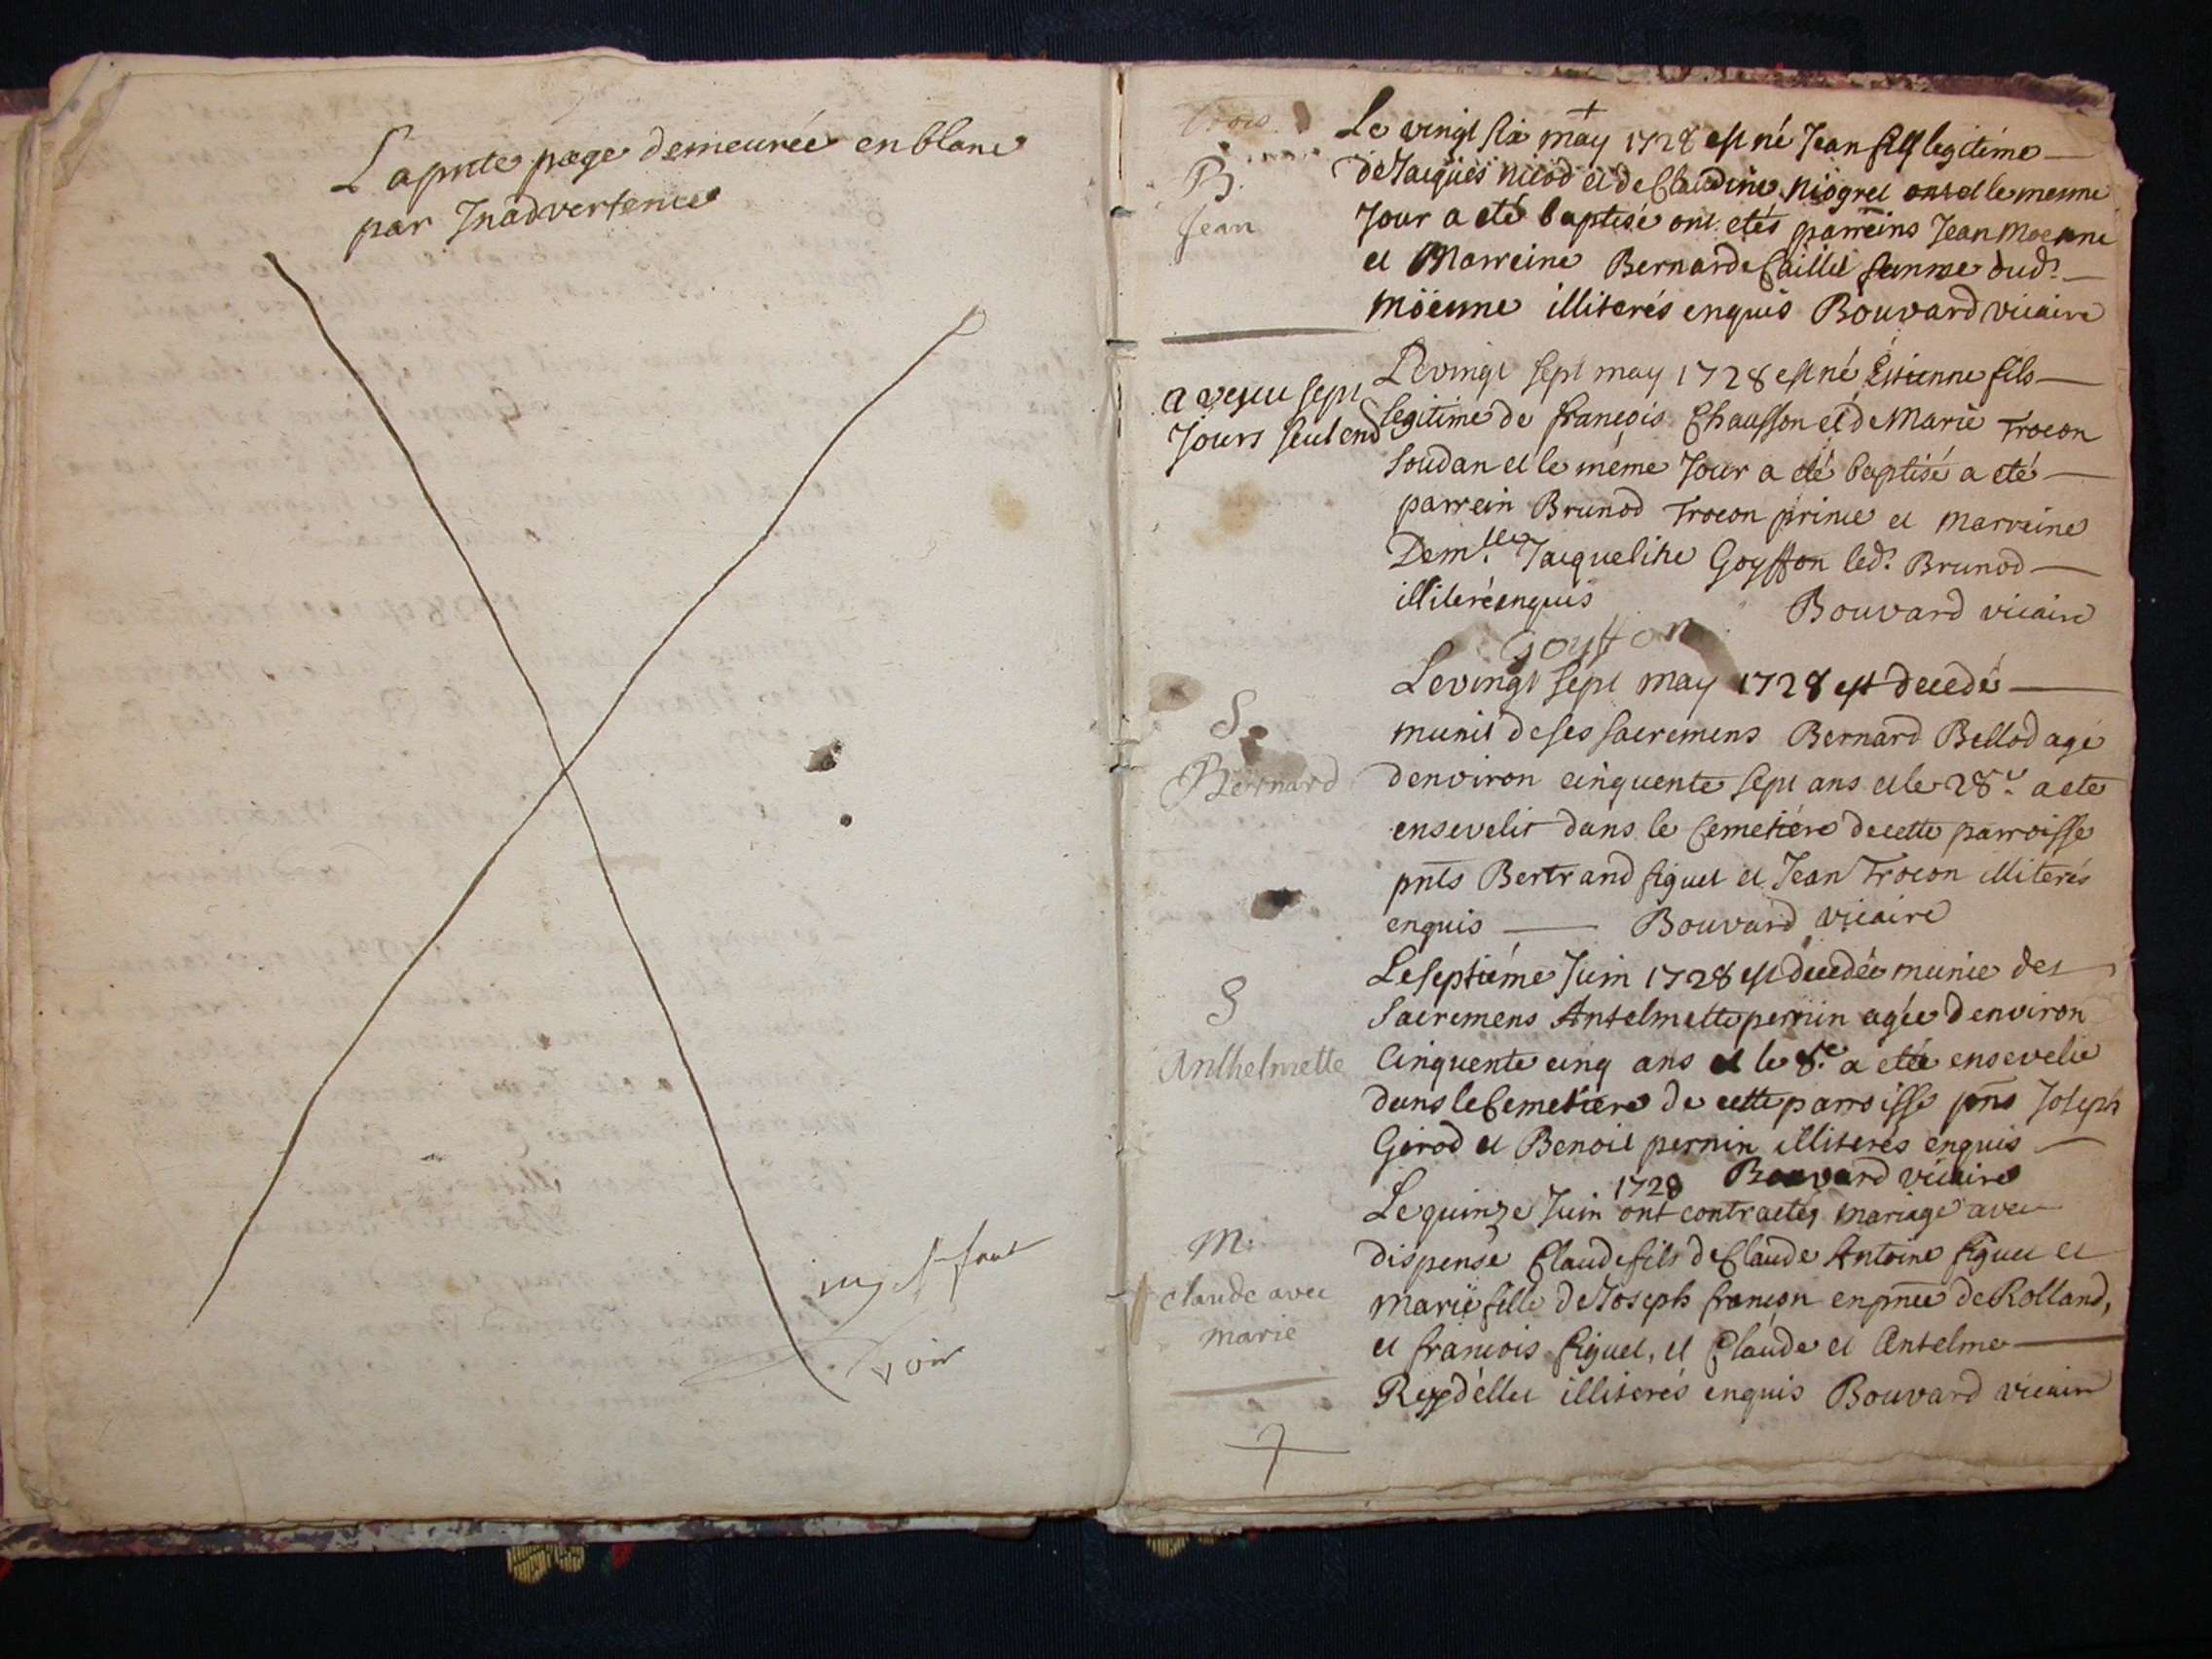 La pnte page demeurée en blanc
par Inadvertence
voir
B.
Jean
Le vingt six may 1728 est né Jean fils legitime
de Jacques nicod et de Claudine niogret et le meme
Jour a eté baptisé ont etés parreins Jean Moenne
et Marreine Bernarde Caillet femme dud.
möenne illiterés enquis Bouvard vicaire
a vequ sept
Jours seulemt
Le vingt sept may 1728 est né Etienne fils
legitime de francois Chausson et de Marie Trocon
Soudan et le méme Jour a eté baptisé a eté
parrein Brunod Trocon prince et marreine
Demlle Jacqueline Goyffon led. Brunod
illiteré enquis Bouvard vicaire
Goyffon
S.
Bernard
Le vingt sept may 1728 est decedé
munit de ses sacremens Bernard Bellod agé
denviron cinquente sept ans et le 28e. a eté
ensevelit dans le Cemetiére de cette parroisse
pnts Bertrand figuet et Jean Trocon illiterés
enquis Bouvard vicaire
S
Anthelmette
Le septiéme Juin 1728 est decedée munie des
Sacremens Antelmette pernin agée denviron
Cinquente cinq ans et le 8e. a etée ensevelie
dans le Cemetiere de cette parroisse pns Joseph
Girod et Benoit pernin illiterés enquis
1728 Bouvard vicaire
M.
claude avec
marie
Le quinze Juin ont contractés mariage avec
dispense Claude fils de Claude Antoine figuet et
Marie fille de Joseph françon en pnce de Rolland,
et francois figuet, et Claude et Antelme
Reydellet illiterés enquis Bouvard vicaire